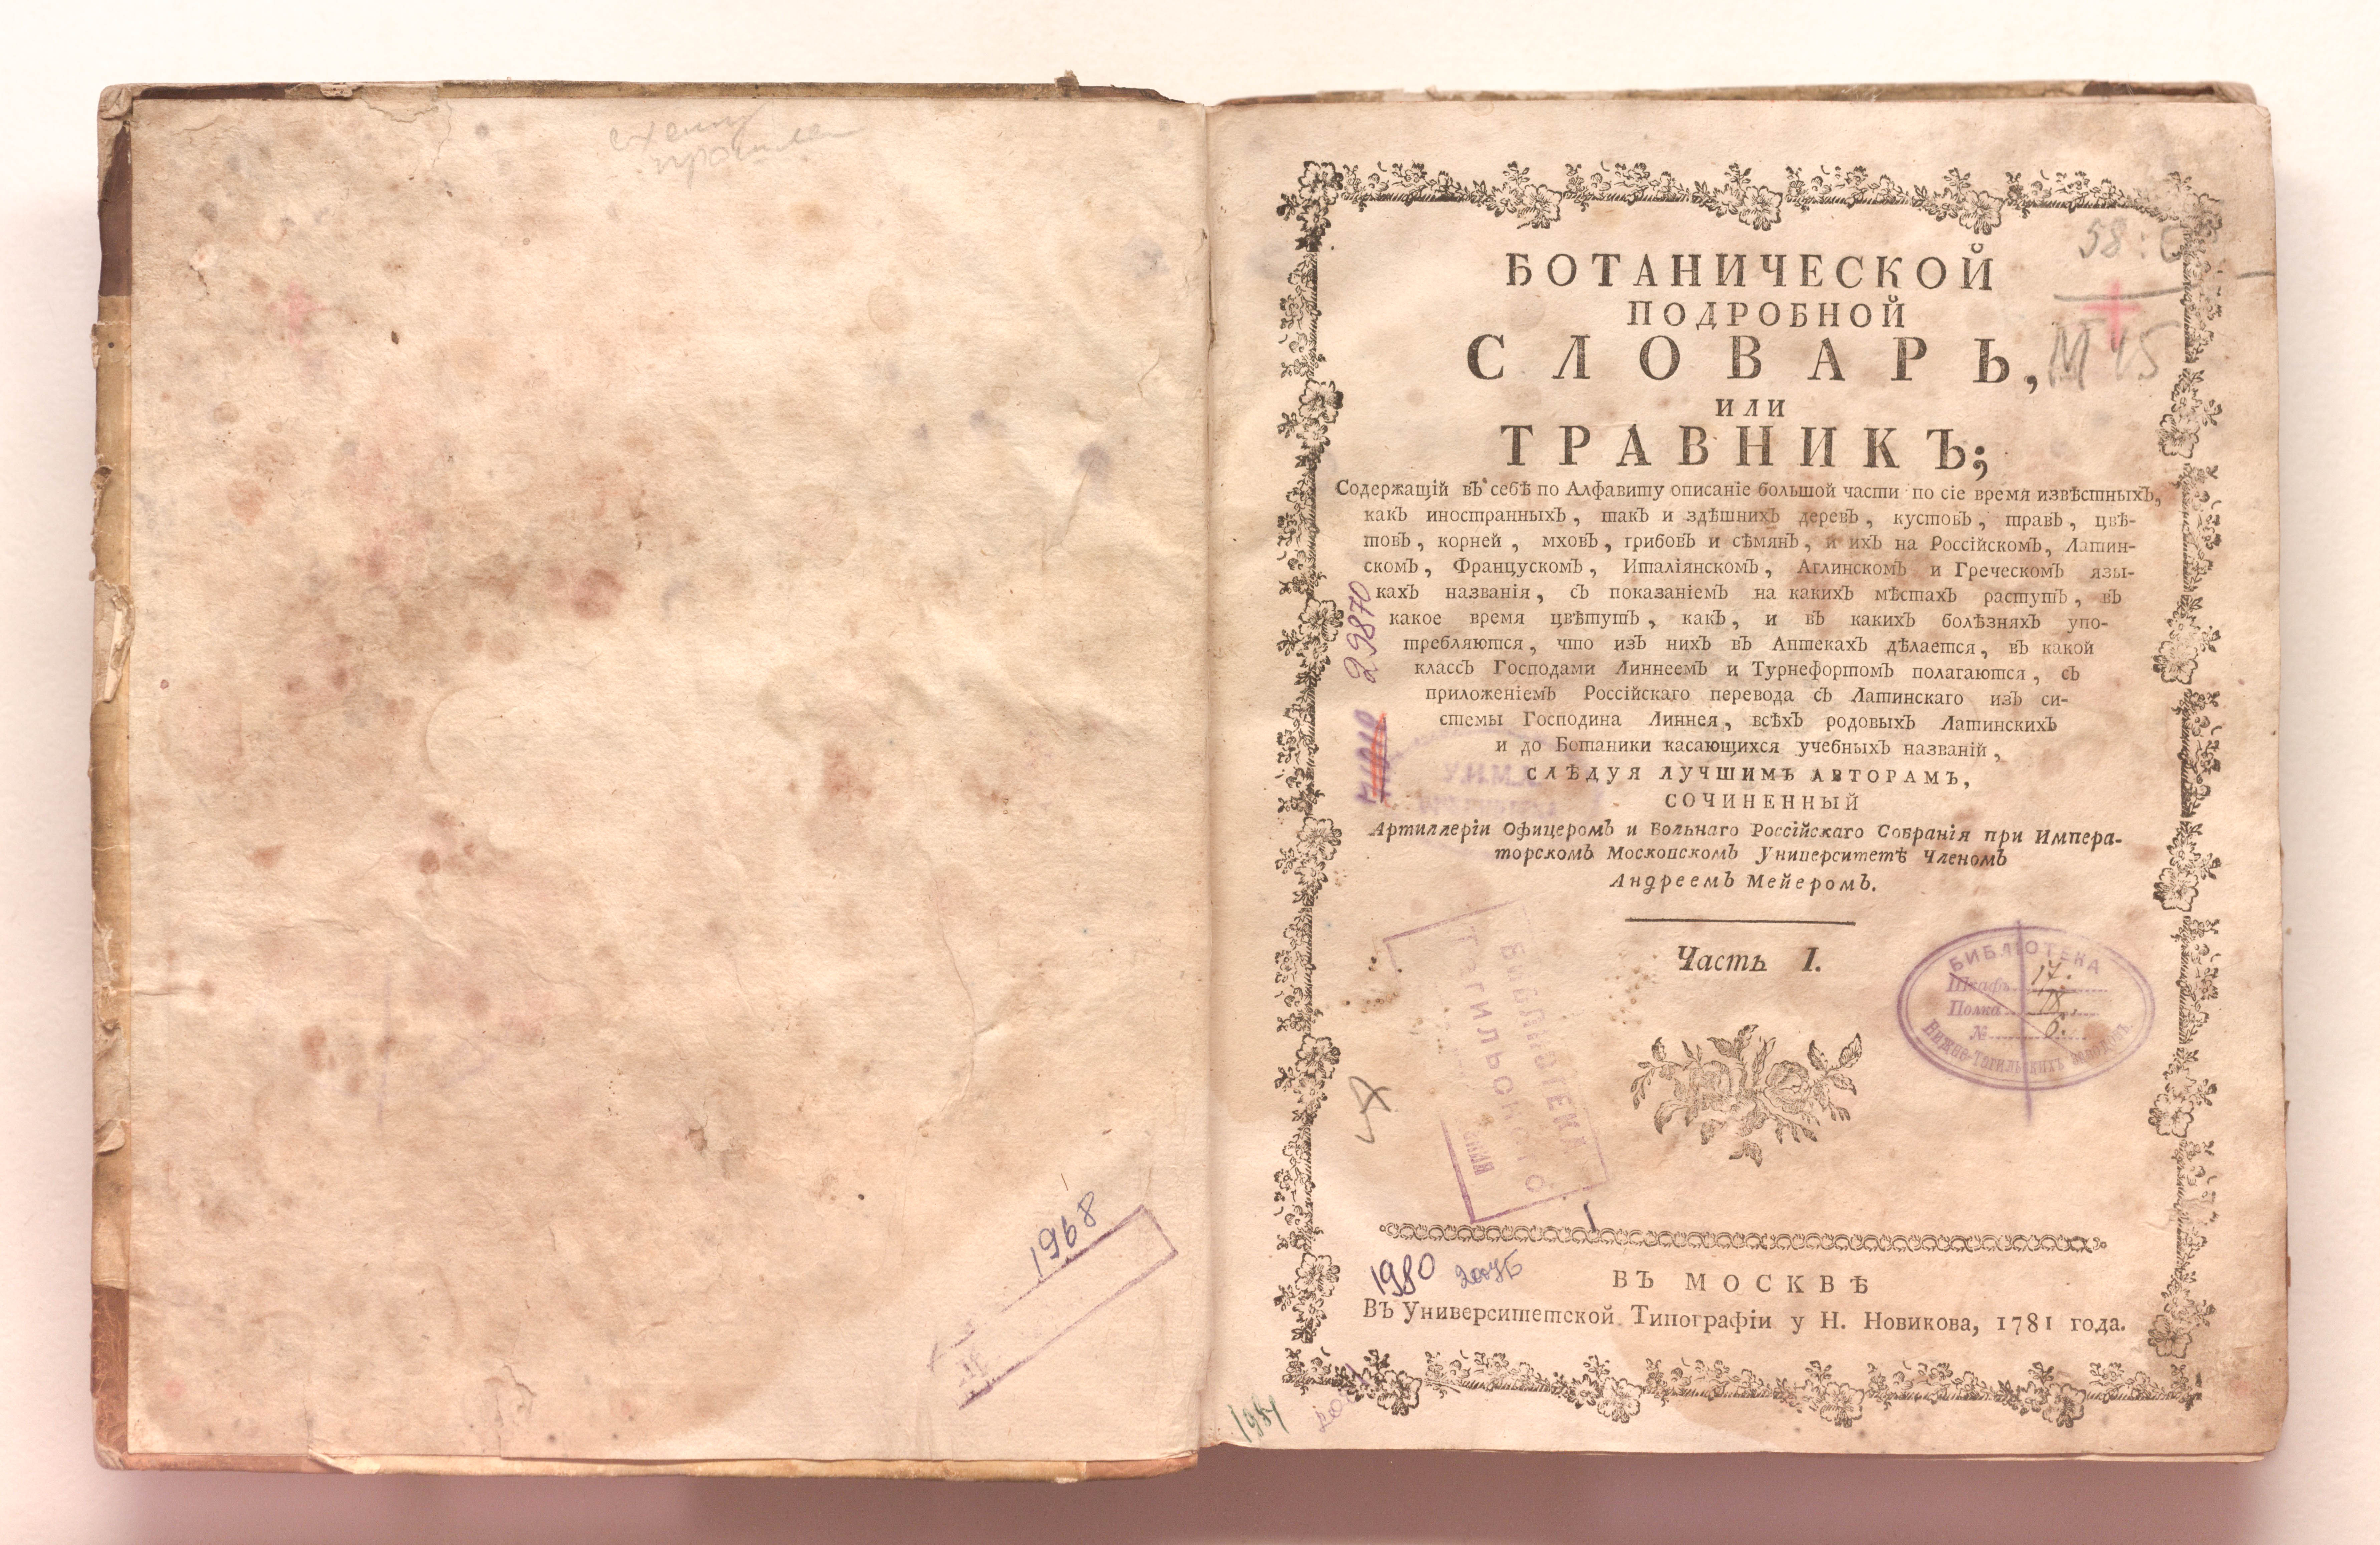 1968
БОТАНИЧЕСКОЙ
ПОДРОБНОЙ
СЛОВАРЬ,
ИЛИ
ТРАВНИКЪ;
Содержащїй въ себѣ по Алфавиту описанїе большой части по сїе время извѣстныхъ,
какъ иностранныхъ, такъ и здѣшнихъ деревъ, кустовъ, травъ, цвѣ-
товъ, корней, мховъ, грибовъ и сѣмянъ, и ихъ на Россїйскомъ, Латин-
скомъ, Француском​ъ, Италїянскомъ, Аглинскомъ и Греческомъ язы-
кахъ названїя, съ показанїемъ на какихъ мѣстахъ растутъ, въ
какое время цвѣтутъ, какъ, и въ какихъ болѣзняхъ упо-
требляются, что изъ нихъ въ Аптекахъ дѣлается, въ какой
классъ Господами Линнеемъ и Турнефортомъ полагаются, съ
приложенїемъ Россїйскаго перевода съ Латинскаго изъ си-
стемы Господина Линнея, всѣхъ родовыхъ Латинскихъ
и до Ботаники касающихся учебныхъ названїй,
СЛѢДУЯ ЛУЧШИМЪ АВТОРАМЪ,
СОЧИНЕННЫЙ
Артиллерїи Офицеромъ и Вольнаго Россїйскаго Собранїя при Импера-
торскомъ Московскомъ Университетѣ Членомъ
Андреемъ Мейеромъ.
Часть I.
58:
М 45
29870
У.И.М.
БИБЛІОТЕКА
Шкафъ 17.
Полка 18.
№ 6.
Нижне-Тагильскихъ заводовъ
БИБЛИОТЕКА
ТАГИЛЬСКОГО
1980
ВЪ МОСКВѢ
Въ Университетской Типографїи у Н. Новикова, 1781 года.
1984